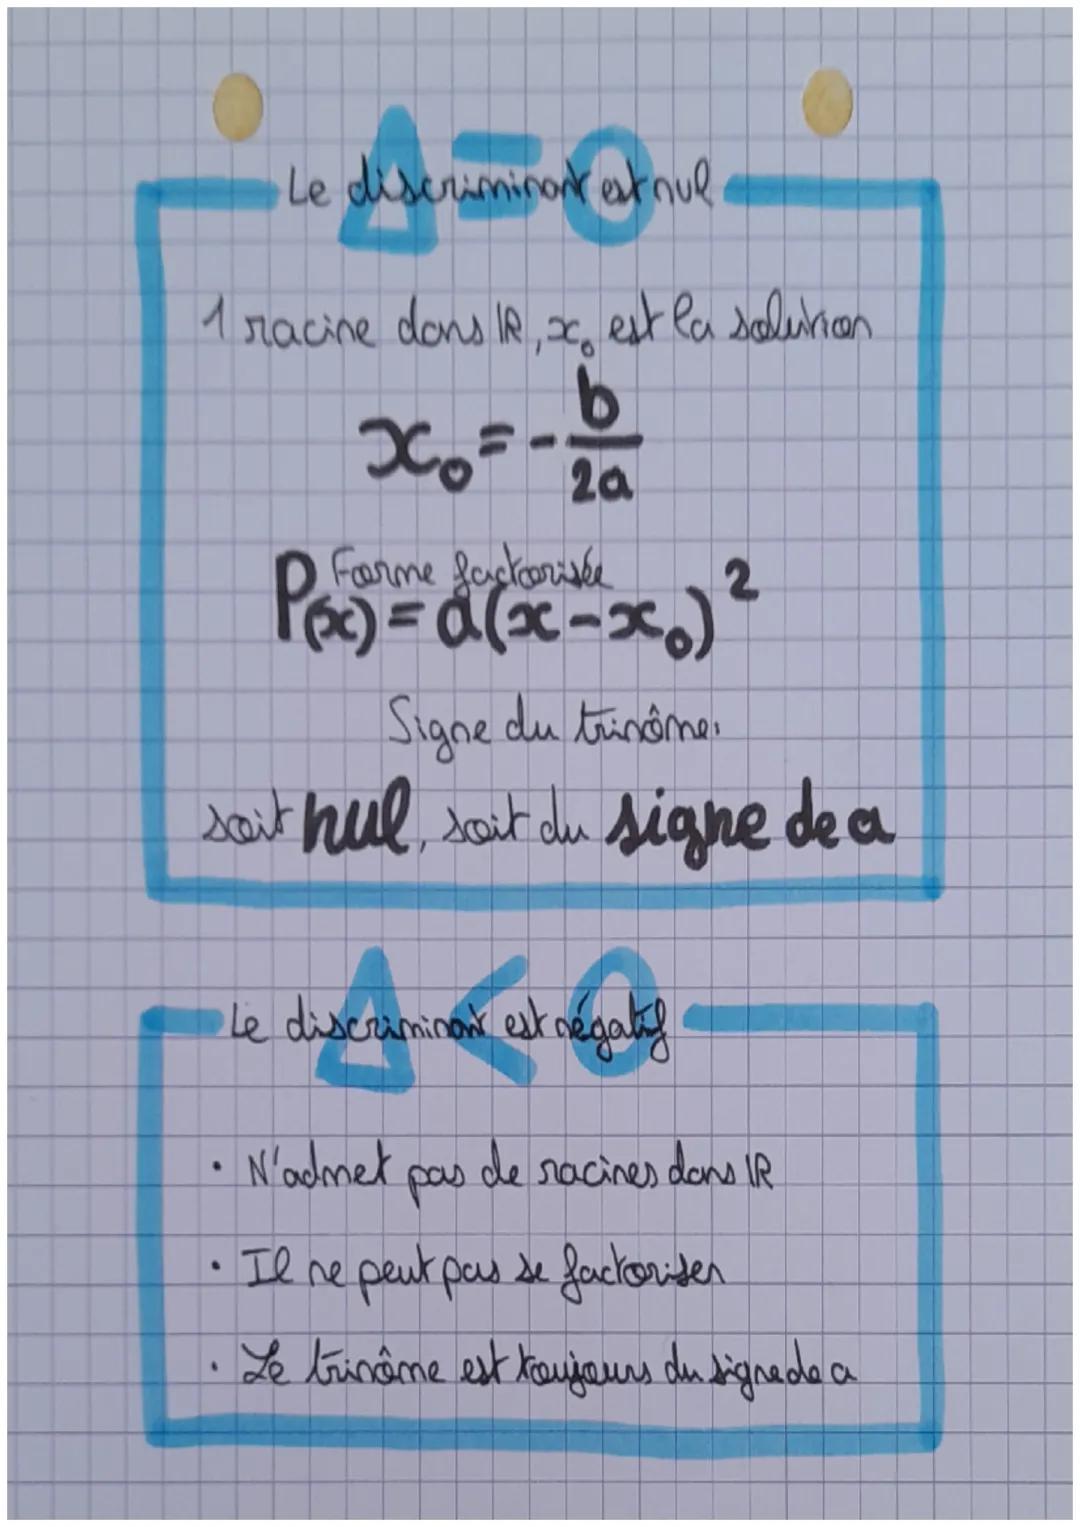 Δ = 0
Le discriminant est nul
1 racine dans ℝ, x₀ est la solution
x₀ = - b/2a
Forme factorisée
P(x) = a(x - x₀)²
Signe du trinôme:
soit nul, soit du signe de a
Δ < 0
Le discriminant est négatif
• N'admet pas de racines dans ℝ
• Il ne peut pas se factoriser
• Le trinôme est toujours du signe de a